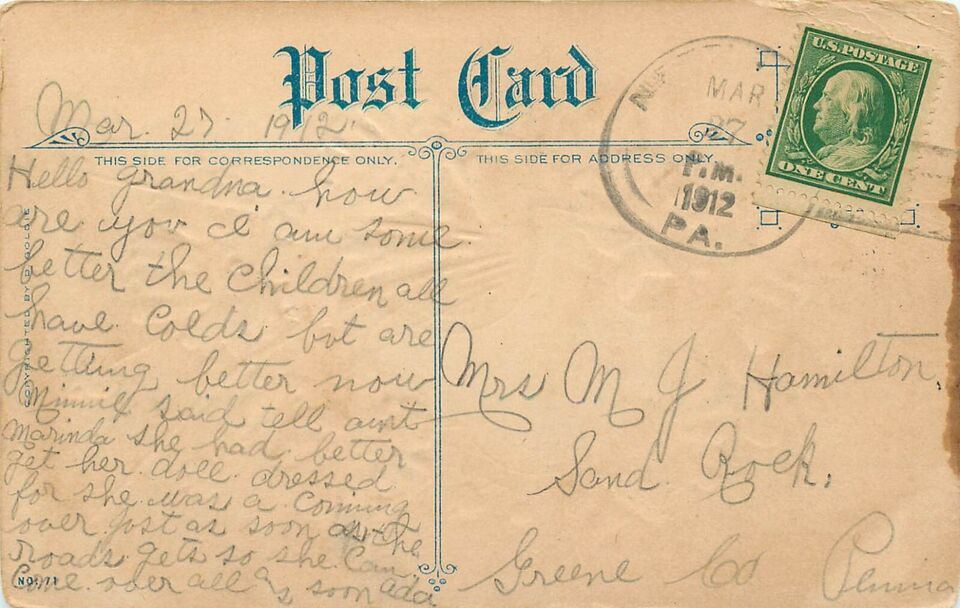 Post Card
Mar. 27. 1912
THIS SIDE FOR CORRESPONDENCE ONLY.
Hello grandna. how
are you I am some.
better the Children all
have. Colds. but are
getting better now
Minnie said tell aint
Marinda she had better
get her doll dressed
for she was a Coming
over jost as soon as the
roads gets so she Can
Come over all soon Ada
COPYRIGHTED BY
NO. 71
THIS SIDE FOR ADDRESS ONLY.
MAR
27
P.M.
1912
PA.
U.S. POSTAGE
ONE CENT
Mrs M J Hamilton,
Sand Rock.
Greene Co Penna